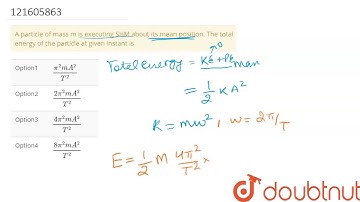 121605863
A particle of mass m is executing SHM about its mean position. The total
energy of the particle at given instant is
Option1 π²mA²/T²
Option2 2π²mA²/T²
Option3 4π²mA²/T²
Option4 8π²mA²/T²
Total energy = KE→0 + PE man
= 1/2 KA²
K = mω², ω = 2π/T
E = 1/2 M 4π²/T² ×
doubtnut